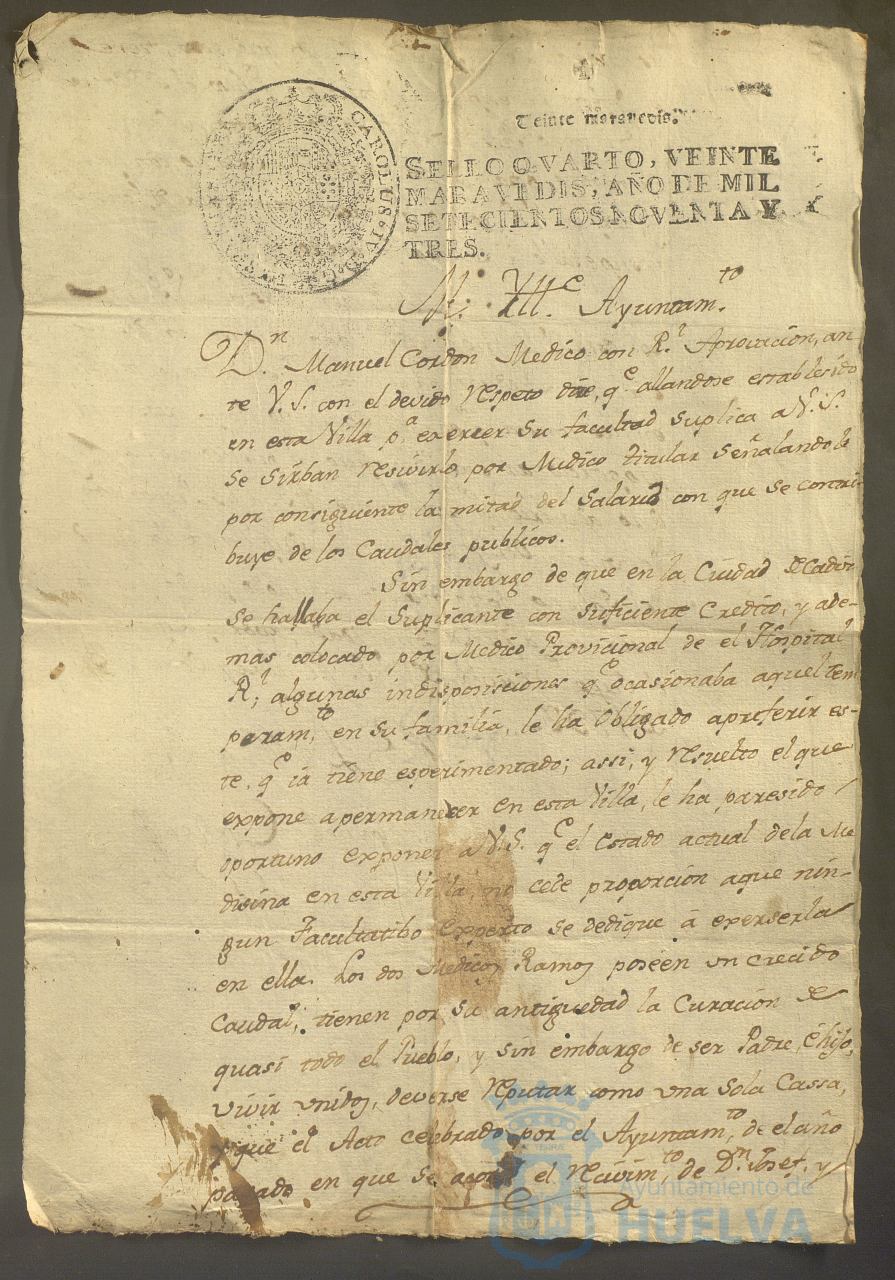 CAROLUS·IV·D·G·
Veinte maravedis.
SELLO QVARTO, VEINTE
MARAVEDIS, AÑO DE MIL
SETECIENTOS NOVENTA Y
TRES.
M. Ylle. Ayuntamto
Dn. Manuel Cordon Medico con Rl. Aprovacion, an-
te V.S. con el devido respeto dice, qe. allandose establesido
en esta Villa pa. exercer su facultad suplica a V.S.
se sirban resivirlo por Medico titular señalandole
por consiguiente la mitad del Salario con que se contri-
buye de los Caudales publicos.
Sin embargo de que en la Ciudad de Cadiz
se hallaba el Suplicante con suficiente Credito, y ade-
mas colocado por Medico Provicional de el Hospital
Rl; algunas indisposiciones qe. ocasionaba aquel tem
peramto, en su familia, le ha obligado a preferir es-
te, qe. ia tiene esperimentado; assi, y resuelto el que
expone a permanecer en esta Villa, le ha paresido
oportuno exponer a V.S. qe. el estado actual de la Me
disina en esta Villa, no cede proporcion a que nin-
gun Facultatibo experto se dedique á experserla
en ella. Los dos Medicos Ramos poseen un crecido
Caudal, tienen por su antiguedad la Curacion de
quasi todo el Pueblo, y sin embargo de ser Padre, é hijo,
vivir unidos, deverse reputar como una sola Cassa,
y que el Acto celebrado por el Ayuntamto, de el año
pasado en que se acordó el recivimto, de Dn. Josef, y
Ayuntamiento de
HUELVA